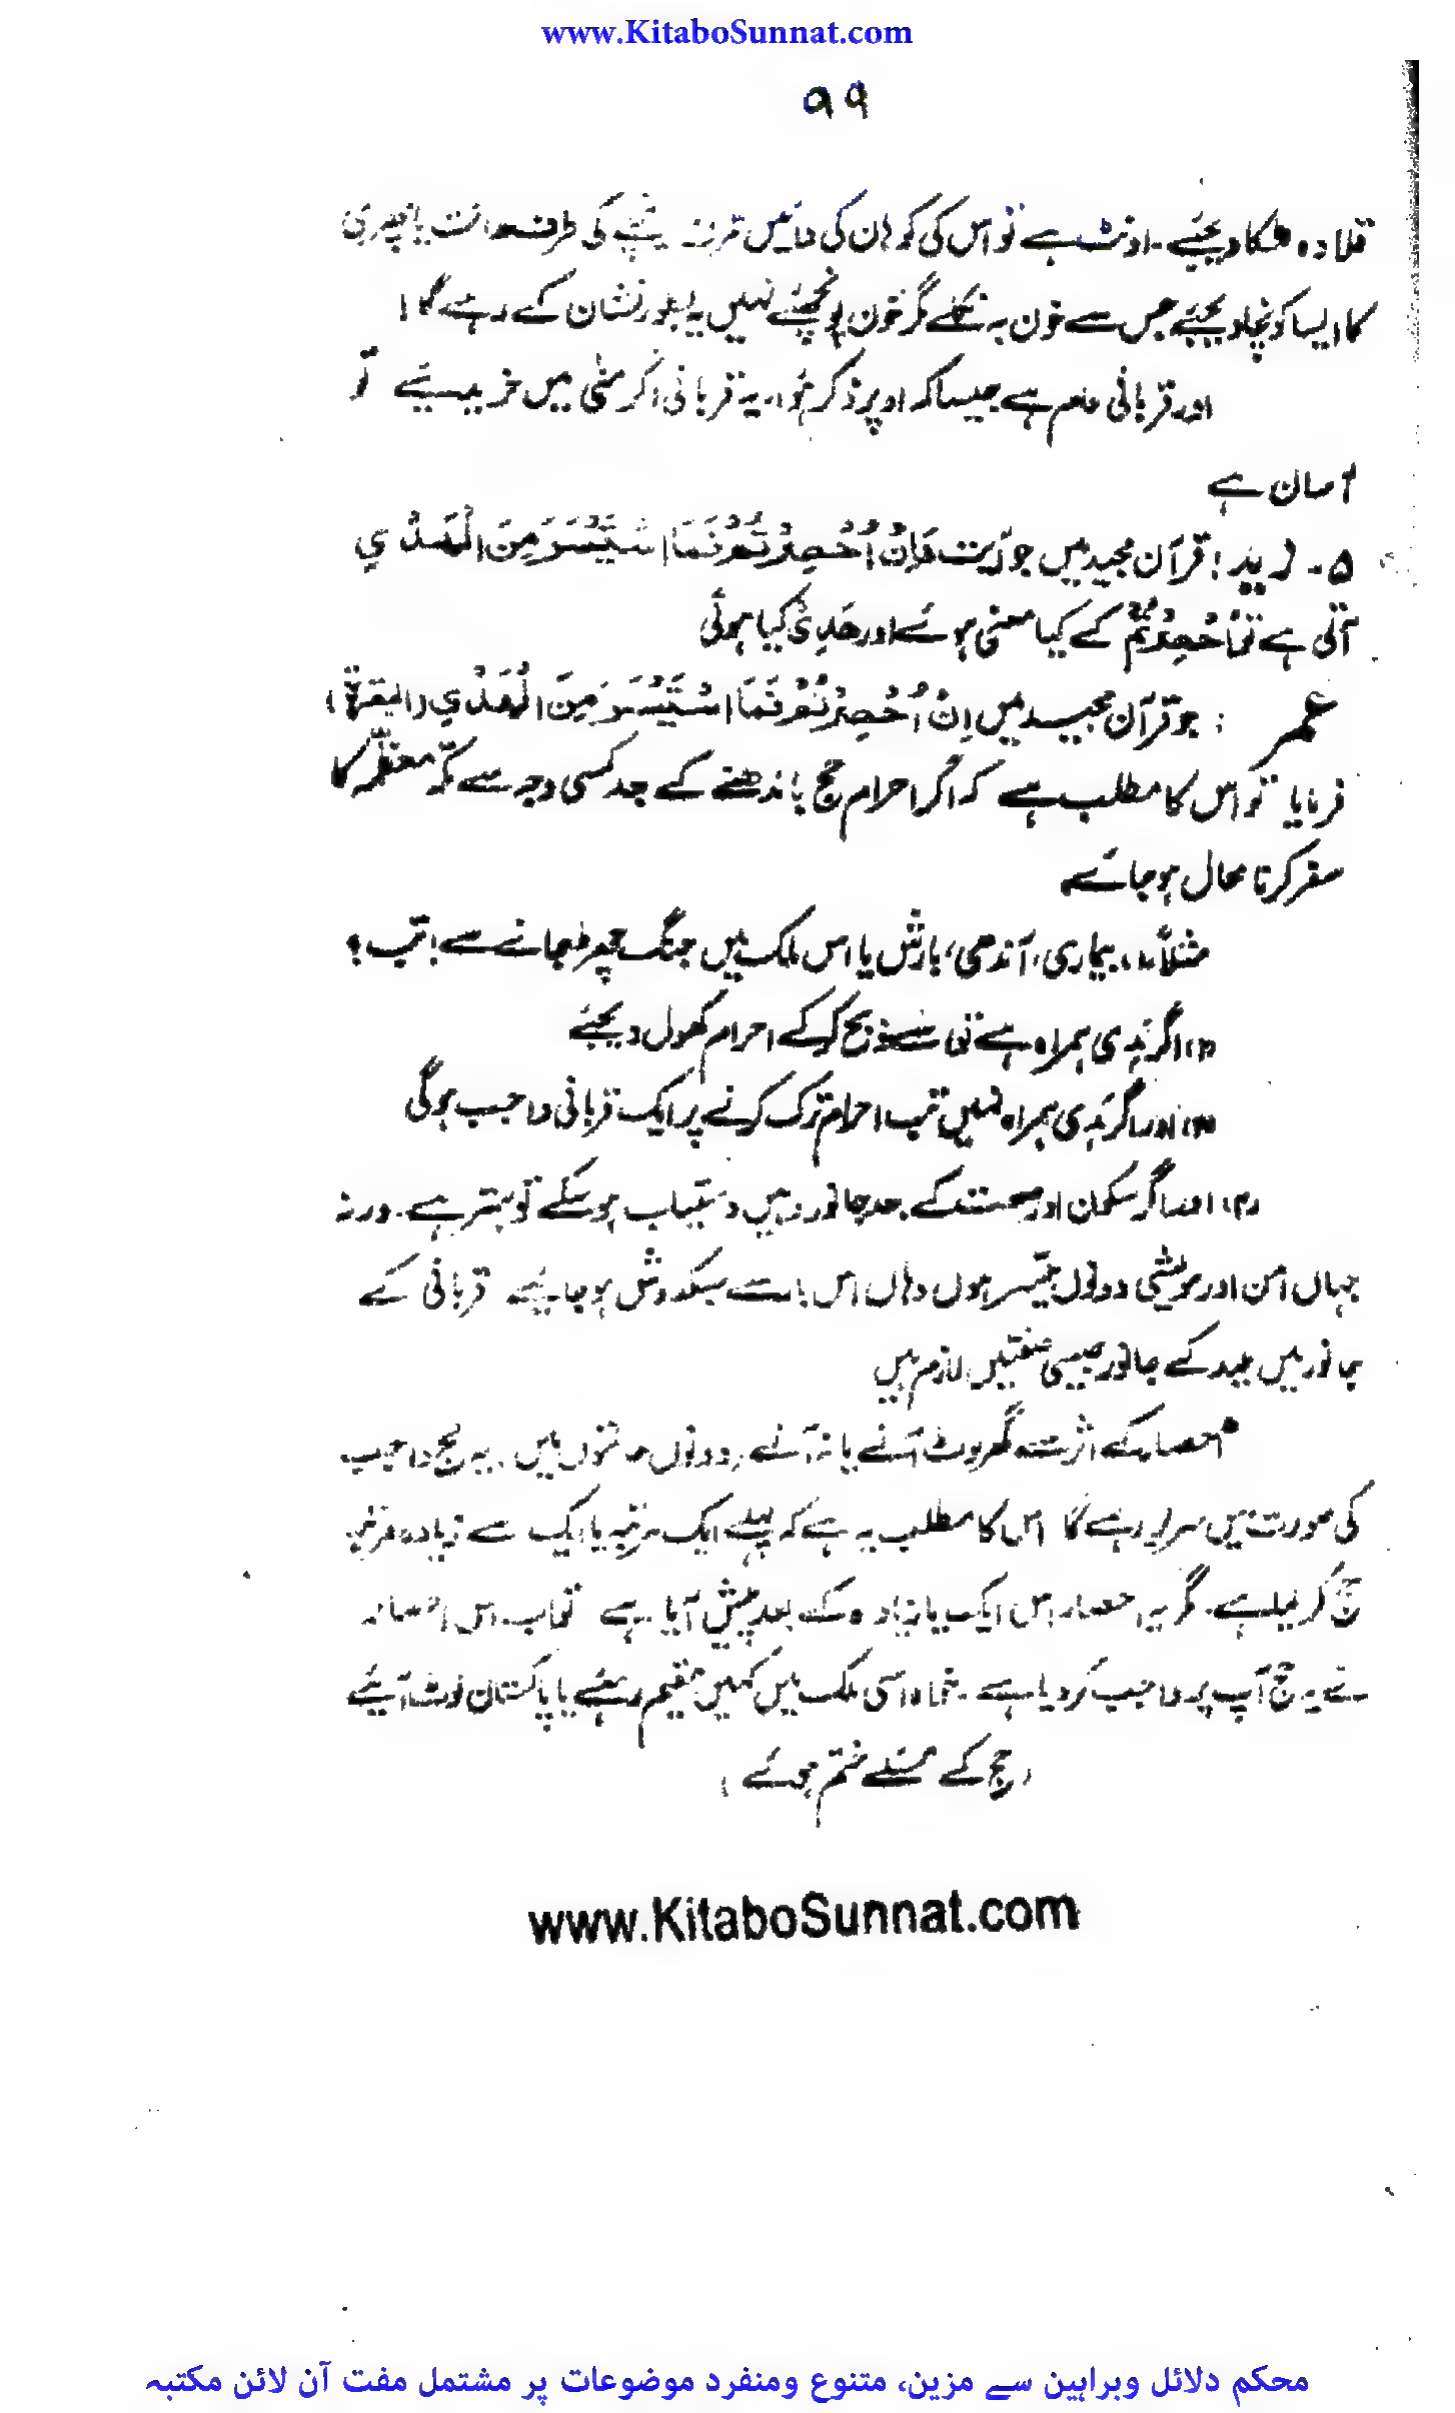 www.KitaboSunnat.com
۹۹
قلادہ لٹکا دیجئے۔ اونٹ ہے تو اس کی کوہان کی دائیں طرف نیچے کی طرف دانت یا چھری
کا ایسا کونچا دیجئے جس سے خون بہ نکلے مگر خون پونچھئے نہیں یہ بطور نشان کے رہے گا!
اور قربانی عام ہے جیسا کہ اوپر ذکر ہوا۔ یہ قربانی اگر منٰی میں خریدیئے تو
آسان ہے
۵۔ زید : قرآن مجید میں جو آیت فَاِنْ اُحْصِرْتُمْ فَمَا اسْتَيْسَرَ مِنَ الْهَدْيِ
آتی ہے تو اُحْصِرْتُمْ کے کیا معنی ہوئے اور ھَدِیْ کیا ہوئی
عمر : جو قرآن مجید میں اِنْ اُحْصِرْتُمْ فَمَا اسْتَيْسَرَ مِنَ الْهَدْيِ (البقرۃ)
فرمایا تو اس کا مطلب ہے کہ اگر احرام حج باندھنے کے بعد کسی وجہ سے مکہ معظمہ کا
سفر کرنا محال ہو جائے
مثلاً ۱، بیماری، آندھی، بارش یا اس ملک میں جنگ چھڑ جانے سے! تب ؟
(۲) اگر ہَدی ہمراہ ہے تو اسے ذبح کر کے احرام کھول دیجئے
(۳) اور اگر ہَدی ہمراہ نہیں تب احرام ترک کرنے پر ایک قربانی واجب ہوگی
(۴) اور اگر سکون اور صحت کے بعد جانور وہیں دستیاب ہو سکے تو بہتر ہے۔ ورنہ
جہاں امن اور مویشی دونوں میسّر ہوں وہاں اس بات سے سبکدوش ہو جایئے قربانی کے
جانور میں عید کے جانور جیسی صفتیں لازم ہیں
• احصار کے اثر سے گھر لوٹ آنے یا نہ آنے دونوں حالتوں میں۔ یہ حج واجب
کی صورت میں سر پر رہے گا اس کا مطلب یہ ہے کہ پہلے ایک مرتبہ یا ایک سے زیادہ مرتبہ
حج کر لیا ہے۔ مگر یہ احصار اس ایک یا زیادہ کے بعد پیش آیا ہے تو اب اس احصار
نے یہ حج آپ پر واجب کر دیا ہے۔ خواہ اسی ملک میں کہیں مقیم رہئے یا پاکستان لوٹ آیئے
(حج کے مسئلے ختم ہوئے)
www.KitaboSunnat.com
محکم دلائل وبراہین سے مزین، متنوع ومنفرد موضوعات پر مشتمل مفت آن لائن مکتبہ